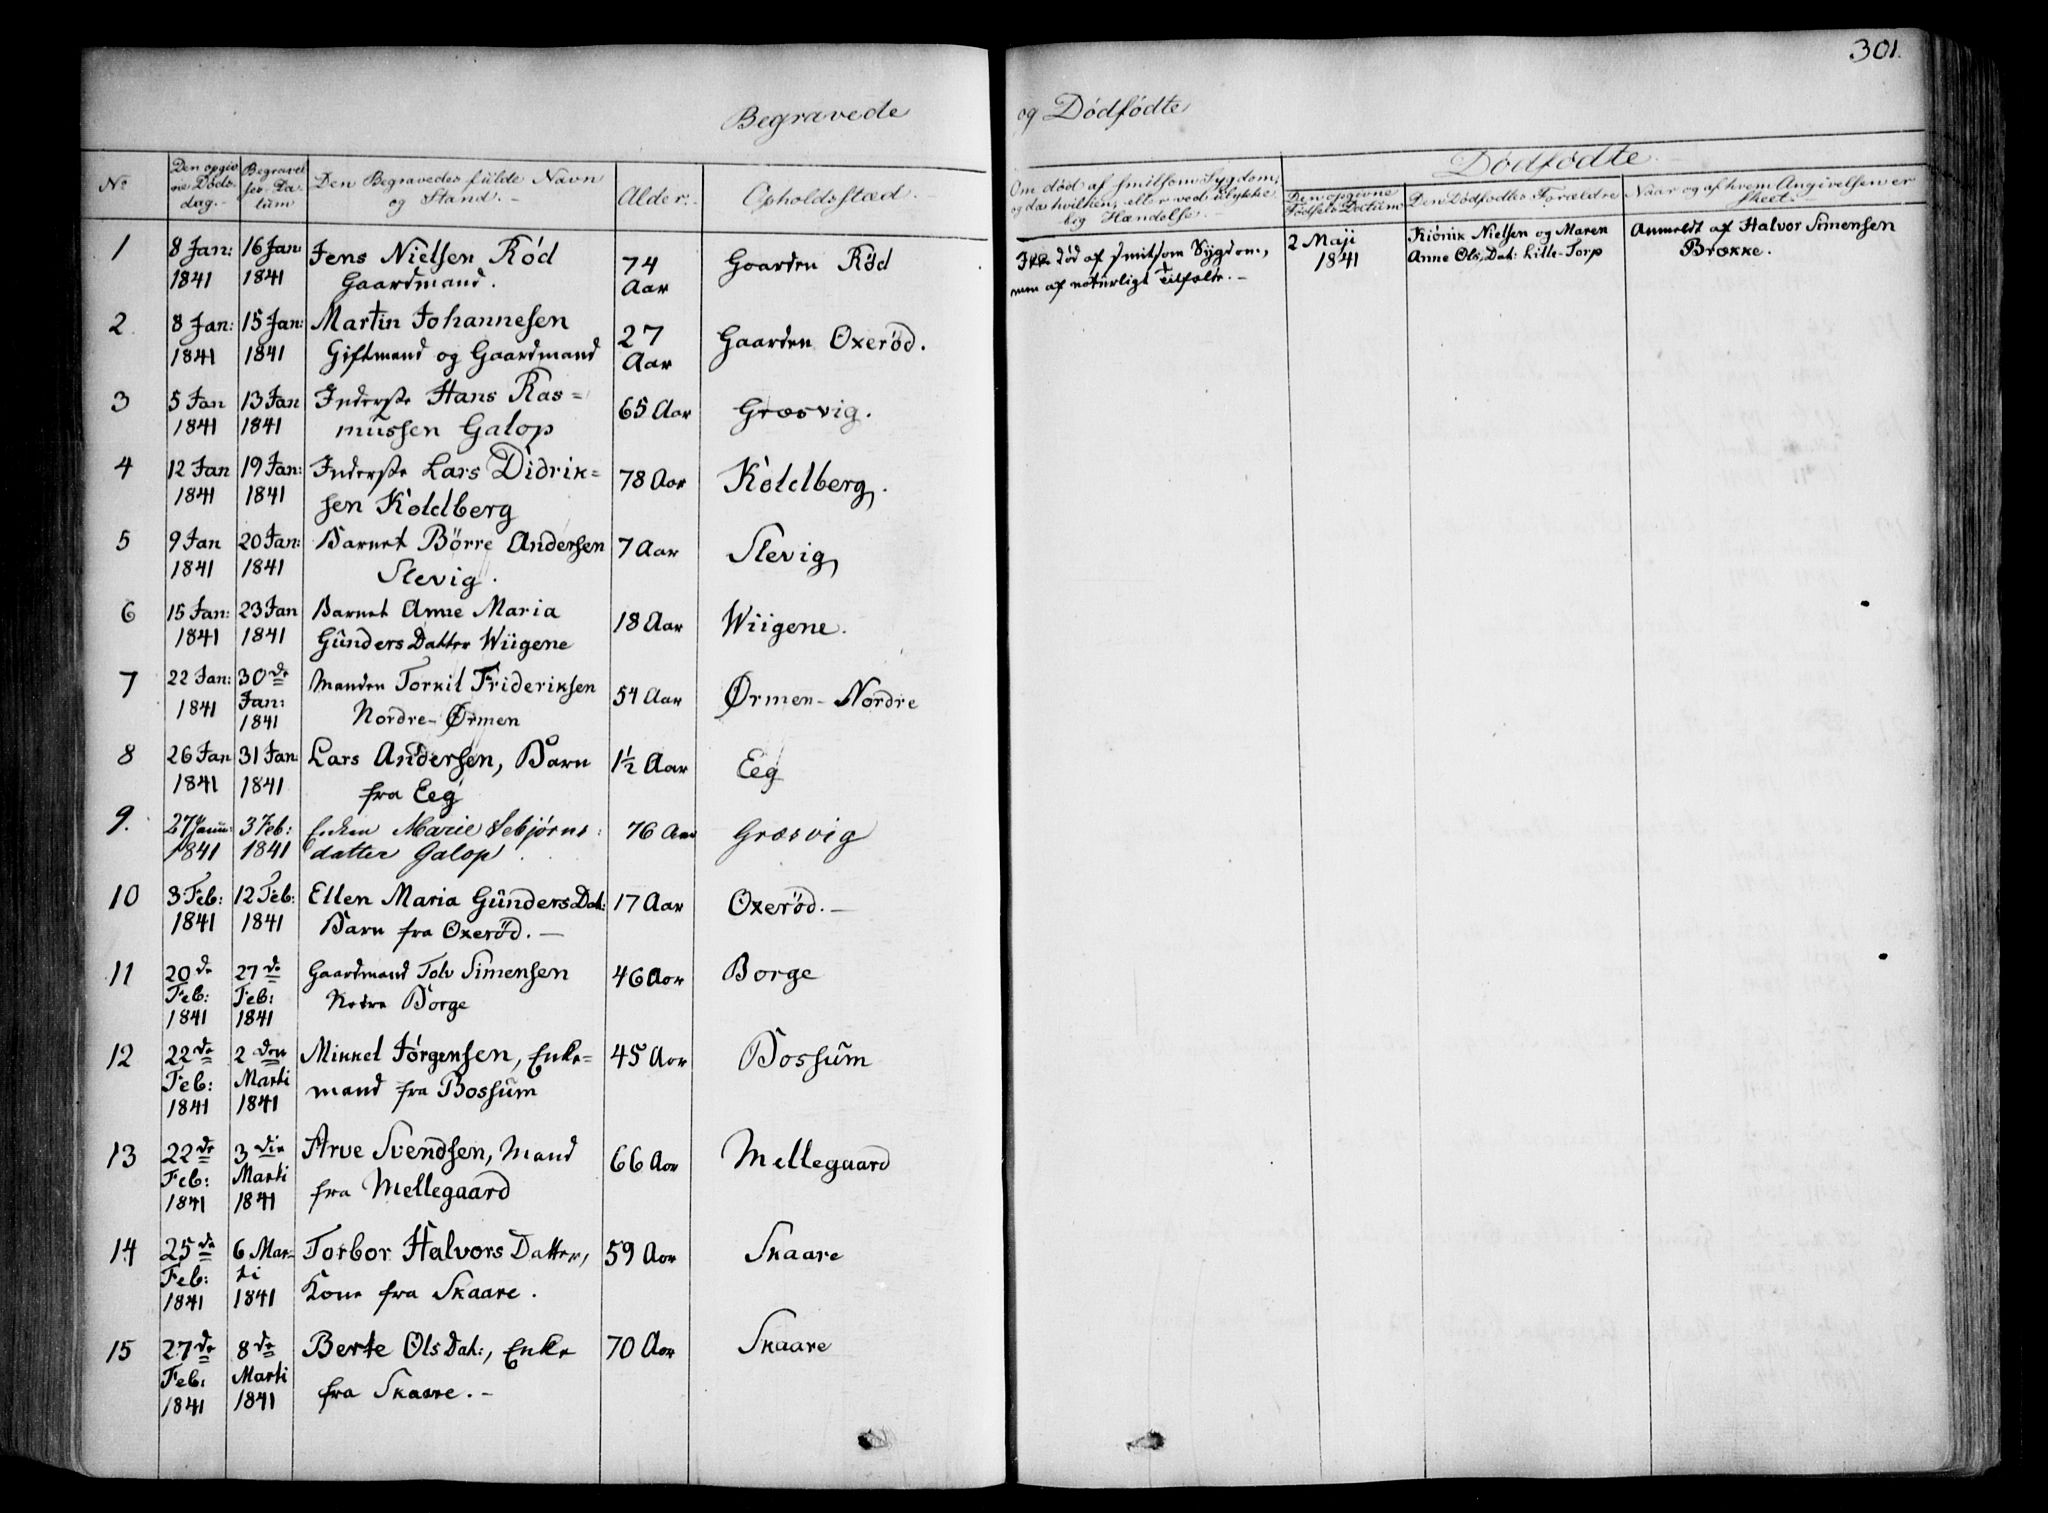 301.
Begravede
og Dødfødte
No
Den opgiv
ne Døds
dag.
Begravel
ses-Da
tum
Den Begravedes fulde Navn
og Stand.
Alder.
Opholdsstæd.
Om død af smitsom Sygdom,
og da hvilken, eller ved ulykke
lig Hændelse.
Dødfødte.
Den opgivne
Fødsels Datum
Den Dødfødtes Forældre
Naar og af hvem Angivelsen er
skeet.
1
8 Jan:
1841
16 Jan:
1841
Jens Nielsen Rød
Gaardmand.
74
Aar
Gaarden Rød
Ikke død af smitsom Sygdom,
men af naturligt Tilfælde.
2 Maji
1841
Kiönik Nielsen og Maren
Anne Ols, Dat: Lille-Torp
Anmeldt af Halvor Simensen
Brække.
2.
8 Jan:
1841
15 Jan:
1841
Martin Johannesen
Giftmand og Gaardmand
27
Aar
Gaarden Oxerød.
3
5 Jan
1841
13 Jan
1841
Inderste Hans Ras=
mussen Galop
65 Aar
Græsvig.
4
12 Jan
1841
19 Jan:
1841
Inderste Lars Didrik=
sen Koldberg
78 Aar
Koldberg.
5
9 Jan
1841
20 Jan:
1841
Barnet Börre Andersen
Slevig.
7 Aar
Slevig
6
15 Jan:
1841
23 Jan
1841
Barnet Anne Maria
Gunders Datter Wiigene
18 Aar
Wiigene.
7
22 Jan:
1841
30 de
Jan:
1841
Manden Torkil Frideriksen
Nordre-Ørmen
54 Aar
Ørmen-Nordre
8
26 Jan
1841
31 Jan:
1841
Lars Andersen, Barn
fra Eeg
1½ Aar
Eeg
9.
27 Janu:
1841
3 Feb:
1841
Enken Marie Sebjørns:
datter Galop.
76 Aar
Græsvig
10
3 Feb:
1841
12 Feb:
1841
Ellen Maria Gunders Dat:
Barn fra Oxeröd. —
17 Aar
Oxeröd. —
11
20 de
Feb:
1841
27 de
Feb:
1841
Gaardmand Tolv Simensen
Nedre Borge
46 Aar
Borge
12
22 de
Feb:
1841
2 den
Marti
1841
Mikkel Jörgensen, Enke=
mand fra Bossum
45 Aar
Bossum
13
22 de
Feb:
1841
3 die
Marti
1841
Arve Svendsen, Mand
fra Mellegaard
66 Aar
Mellegaard
14
25 de
Feb:
1841
6 Mar=
ti
1841
Torbor Halvors Datter,
Kone fra Skaare.
59 Aar
Skaare
15
27 de
Feb:
1841
8 de
Marti
1841
Berte Ols Dat:, Enke
fra Skaare. –
70 Aar
Skaare